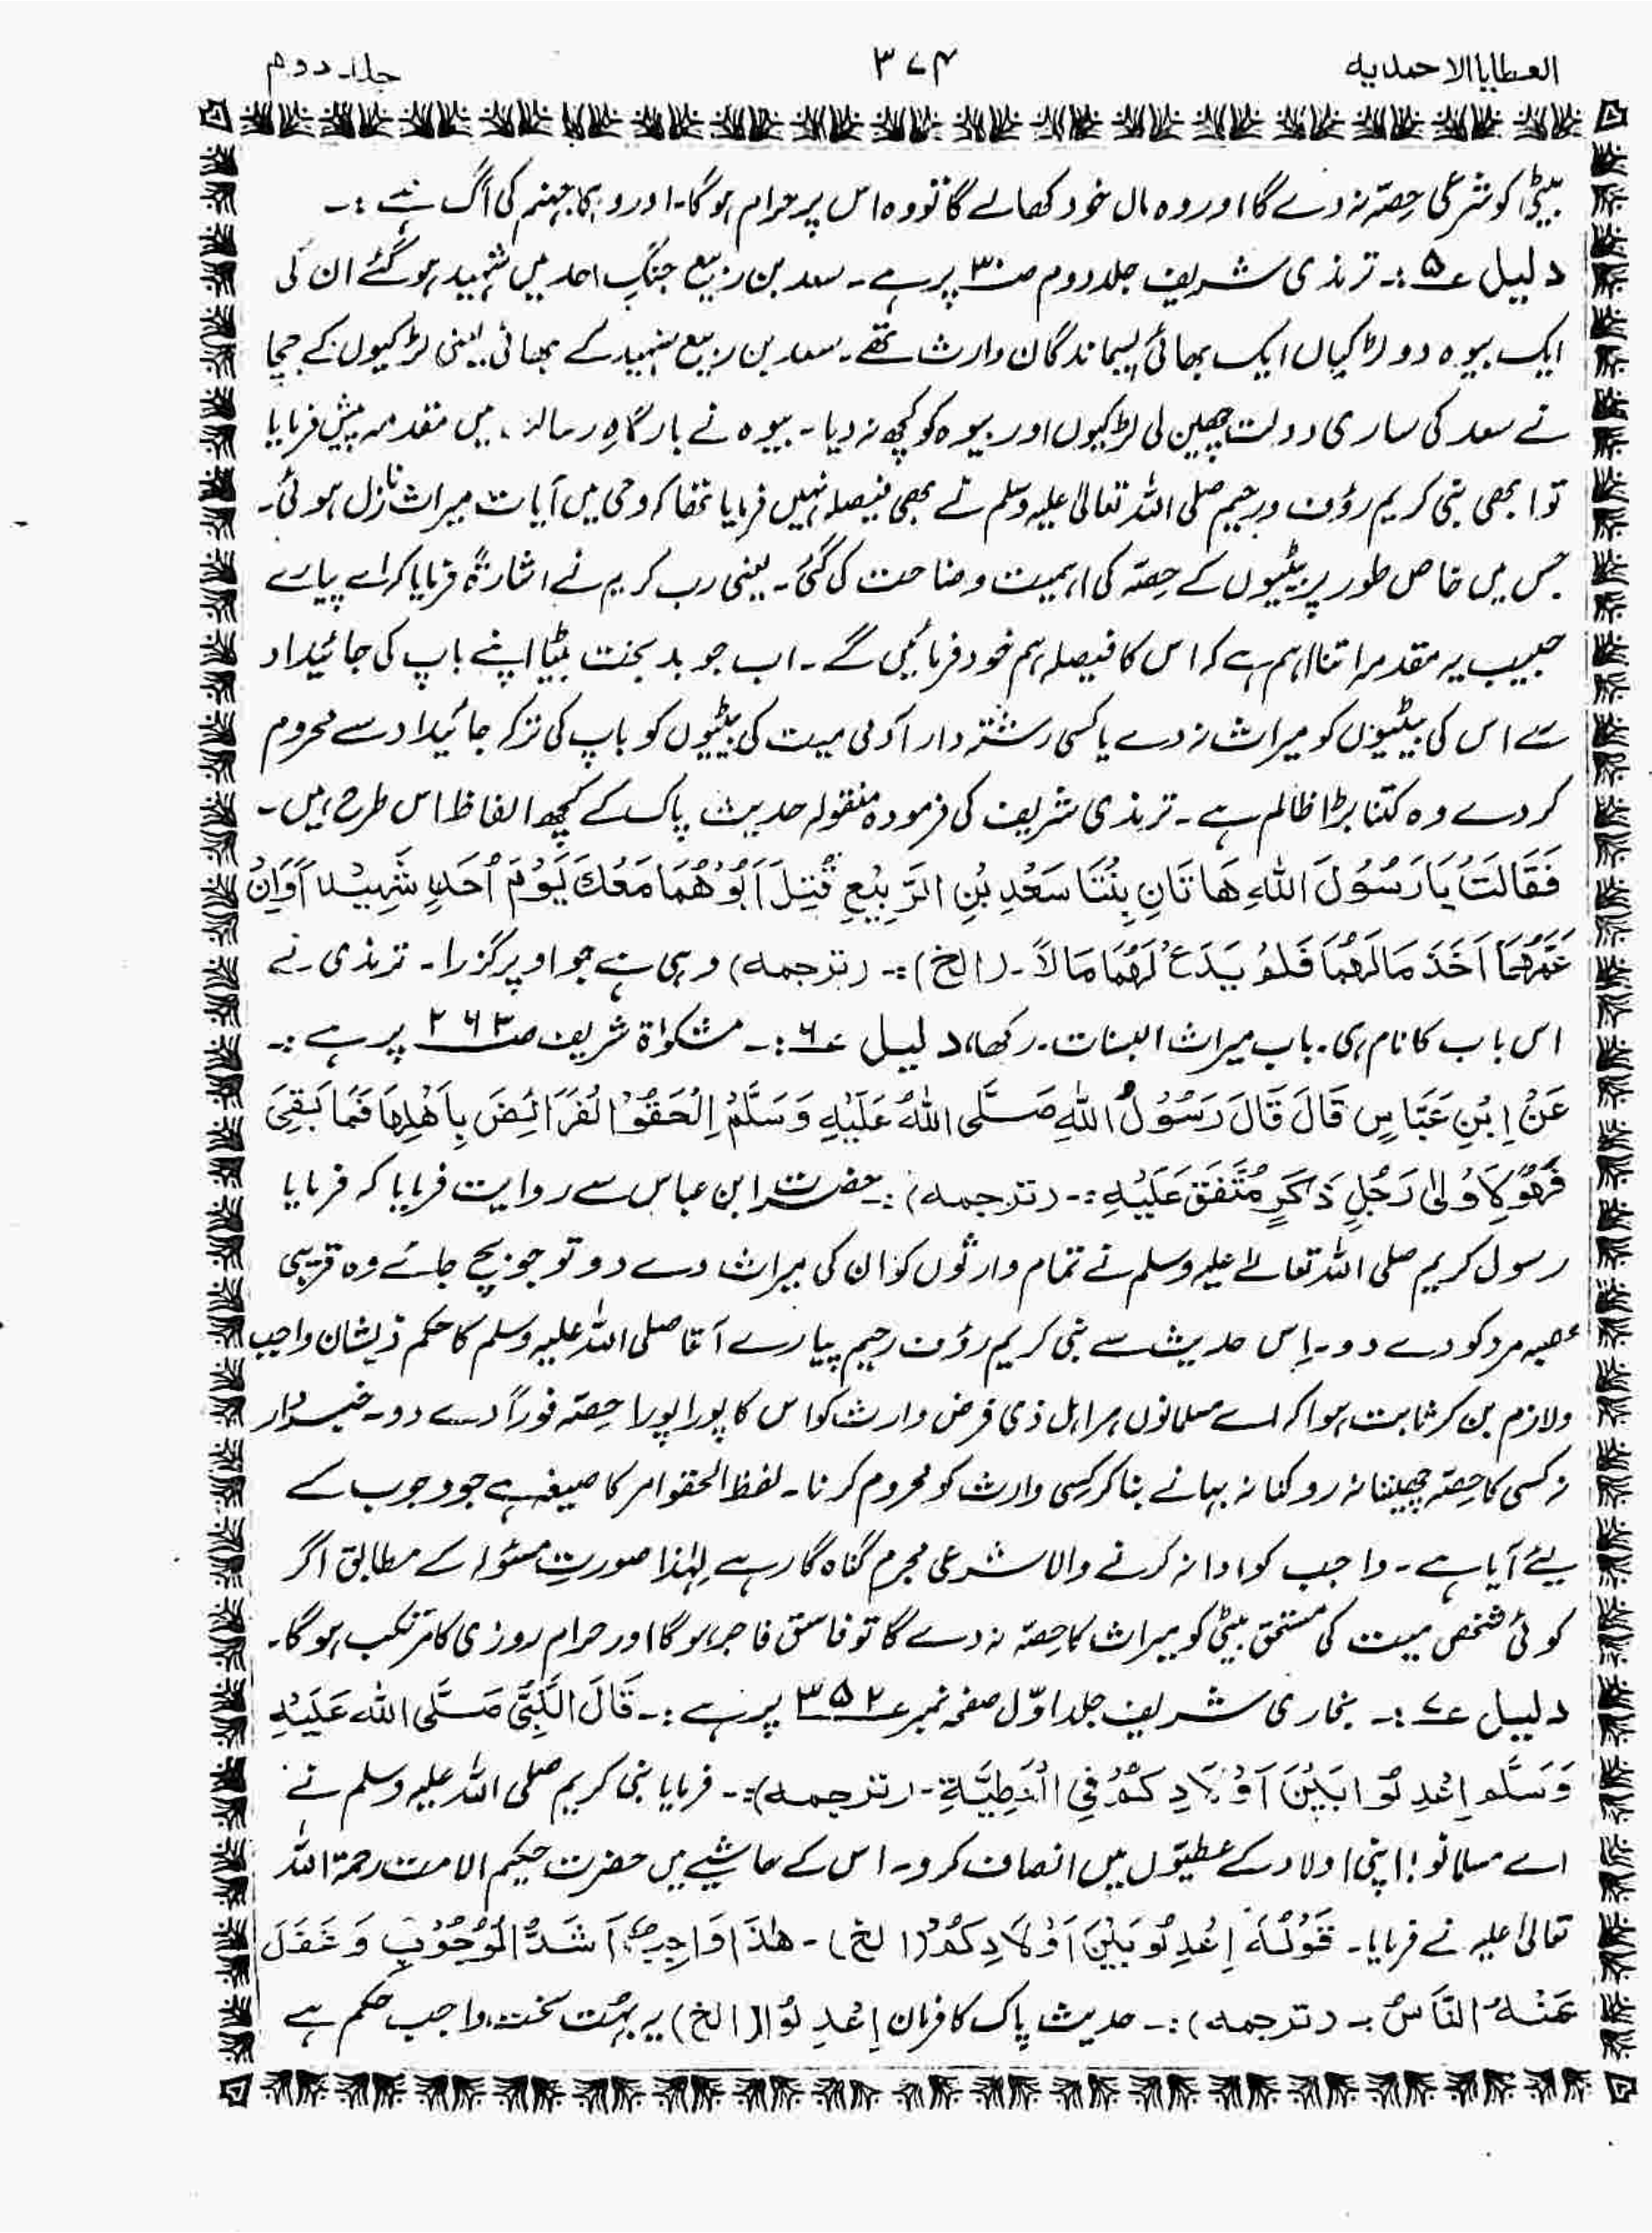 العطایا الاحمدیہ
۳۷۴
جلد دوم
بیٹی کو شرعی حِصّہ نہ دے گا اور وہ مال خود کھالے گا تو وہ اس پر حرام ہوگا۔ اور وہی جہنم کی آگ ہے :۔
دلیل ع۵ :۔ ترمذی شریف جلد دوم صـ۳۰ پر ہے۔ سعد بن ربیع جنگِ احد میں شہید ہو گئے ان کی
ایک بیوہ دو لڑکیاں ایک بھائی پسیماندگان وارث تھے۔ سعد بن ربیع شہید کے بھائی یعنی لڑکیوں کے چچا
نے سعد کی ساری دولت چھین لی لڑکیوں اور بیوہ کو کچھ نہ دیا۔ بیوہ نے بارگاہِ رسالت میں مقدمہ پیش فرمایا
تو ابھی نبی کریم رؤف ورحیم صلی اللہ تعالیٰ علیہ وسلم نے بھی فیصلہ نہیں فرمایا تھا کہ وحی میں آیات میراث نازل ہوئی۔
جس میں خاص طور پر بیٹیوں کے حِصّہ کی اہمیت وضاحت کی گئی۔ یعنی رب کریم نے اشارۃً فرمایا کہ اے پیارے
حبیب یہ مقدمہ اتنا اہم ہے کہ اس کا فیصلہ ہم خود فرمائیں گے۔ اب جو بد بخت بیٹا اپنے باپ کی جائیداد
سے اس کی بیٹیوں کو میراث نہ دے یا کسی رشتہ دار آدمی میت کی بیٹیوں کو باپ کی ترکہ جائیداد سے محروم
کر دے وہ کتنا بڑا ظالم ہے۔ ترمذی شریف کی فرمودہ منقولہ حدیث پاک کے کچھ الفاظ اس طرح ہیں۔
فَقَالَتْ يَا رَسُوْلَ اللهِ هَاتَانِ بِنْتَا سَعْدِ بْنِ الرَّبِيْعِ قُتِلَ اَبُوْهُمَا مَعَكَ يَوْمَ اُحَدٍ شَهِيْدًا وَاِنَّ
عَمَّهُمَا اَخَذَ مَالَهُمَا فَلَمْ يَدَعْ لَهُمَا مَالاً۔ (الخ) :۔ (ترجمہ) وہی ہے جو اوپر گزرا۔ ترمذی نے
اس باب کا نام ہی۔ باب میراث البنات۔ رکھا، دلیل ع۶ :۔ مشکوٰۃ شریف صـ۲۶۳ پر ہے :۔
عَنْ اِبْنِ عَبَّاسٍ قَالَ قَالَ رَسُوْلُ اللهِ صَلَّى اللهُ عَلَيْهِ وَسَلَّمْ اِلْحَقُوْا الْفَرَائِضَ بِاَهْلِهَا فَمَا بَقِيَ
فَهُوَ لِاَوْلٰى رَجُلٍ ذَكَرٍ مُتَّفَقٌ عَلَيْهِ :۔ (ترجمہ) :۔ حضرت ابن عباس سے روایت فرمایا کہ فرمایا
رسول کریم صلی اللہ تعالےٰ علیہ وسلم نے تمام وارثوں کو ان کی میراث دے دو تو جو بچ جائے وہ قریبی
عصبہ مرد کو دے دو۔ اِس حدیث سے نبی کریم رؤف رحیم پیارے آقا صلی اللہ علیہ وسلم کا حکم ذیشان واجب
ولازم بن کر ثابت ہوا کہ اے مسلمانوں ہر اہل ذی فرض وارث کو اس کا پورا پورا حِصّہ فوراً دے دو۔ خبردار
نہ کسی کا حِصّہ چھیننا نہ روکنا نہ بہانے بنا کر کسِی وارث کو محروم کرنا۔ لفظ الحقوا امر کا صیغہ ہے جو وجوب کے
لیئے آیا ہے۔ واجب کو ادا نہ کرنے والا شرعی مجرم گناہ گار ہے لہٰذا صورتِ مسئولہ کے مطابق اگر
کوئی شخص میت کی مستحق بیٹی کو میراث کا حِصّہ نہ دے گا تو فاسق فاجر ہوگا اور حرام روزی کا مرتکب ہوگا۔
دلیل ع۷ :۔ بخاری شریف جلد اوّل صفحہ نمبر ع۳۵۲ پر ہے :۔ قَالَ النَّبِيُّ صَلَّى الله عَلَيْهِ
وَسَلَّم اِعْدِلُوْا بَيْنَ اَوْلَادِكُمْ فِي الْعَطِيَّةِ۔ (ترجمہ) :۔ فرمایا نبی کریم صلی اللہ علیہ وسلم نے
اے مسلمانو! اپنی اولاد کے عطیّوں میں انصاف کرو۔ اس کے حاشیے میں حضرت حکیم الامت رحمۃ اللہ
تعالیٰ علیہ نے فرمایا۔ قَوْلُهٗ اِعْدِلُوْ بَيْنَ اَوْلَادِكُمْ (الخ)۔ هٰذَا وَاجِبٌ اَشَدُّ الْوُجُوْبِ وَغَفَلَ
عَنْهُ النَّاسُ :۔ (ترجمہ) :۔ حدیث پاک کا فرمان اِعْدِلُوْا (الخ) یہ بہُت سخت واجب حکم ہے